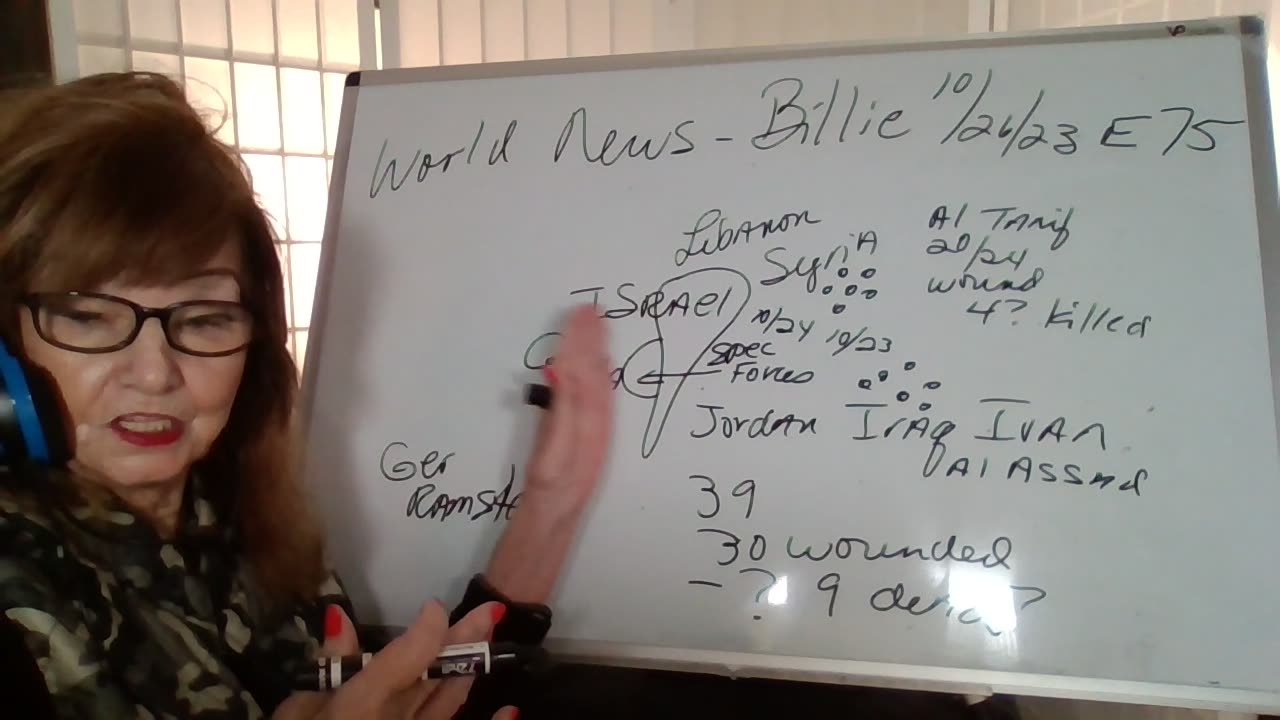 World News - Billie 10/26/23 E 75
Lebanon
Syria
Al Tanif
20/24
wound
4? killed
ISRAEl
10/24 10/23
Spec
Forces
Jordan IrAq IrAn
Al ASSAd
Ger
39
30 wounded
- ? 9 dead?